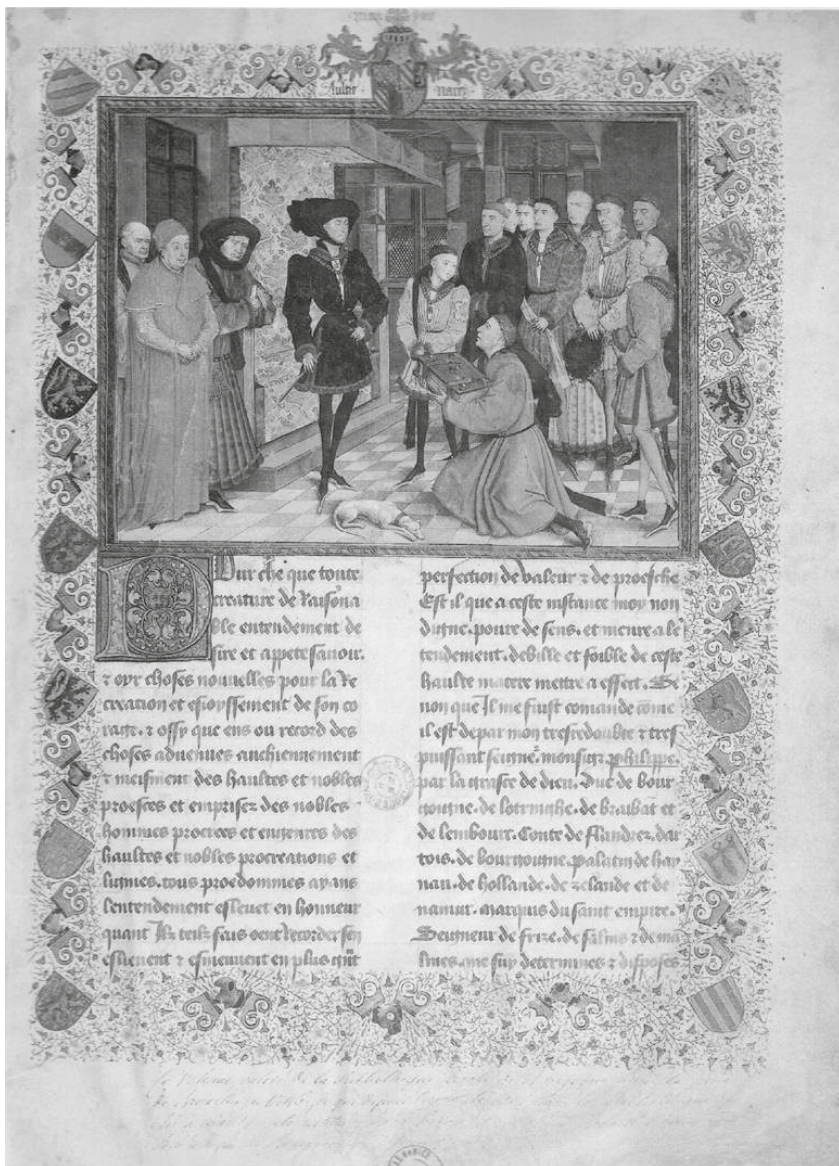 Aultre Naray
Pour che que toute
creature de Raison a
ble entendement de
sire et appete sauoir.
⁊ oyr choses nouuelles pour la Re
creation et esioyssement de son co
rage. ⁊ ossy que ens ou record des
choses aduenues anchiennement
⁊ meisment des haultes et nobles
proesces et emprises des nobles
hommes procrees et engenres des
haultes et nobles procreations et
lignies. tous proedommes ayans
lentendement esleuet en honneur
quant Ilz telz fais oent recorder sen
esliеuent ⁊ esmeuuent en plus grāt
perfection de valeur ⁊ de proesche
Est il que a ceste instance moy non
digne. poure de sens. et meure a lē
tendement. debille et foible de ceste
haulte matere mettre a effect. Se
non que Il me fuist comande come
il est de par mon tresredoubte ⁊ tres
puissant seigneʳ. monsigʳ phelippe.
par la grasce de dieu. Duc de bour
gongne. de lotrinche. de braibāt et
de lembourc. Conte de flandres. dar
tois. de bourgongne. palatin de hay
nau. de hollande. de zelande et de
namur. marquis du saint empire.
Seigneur de frize. de salins ⁊ de ma
lines. me suy determines ⁊ disposes